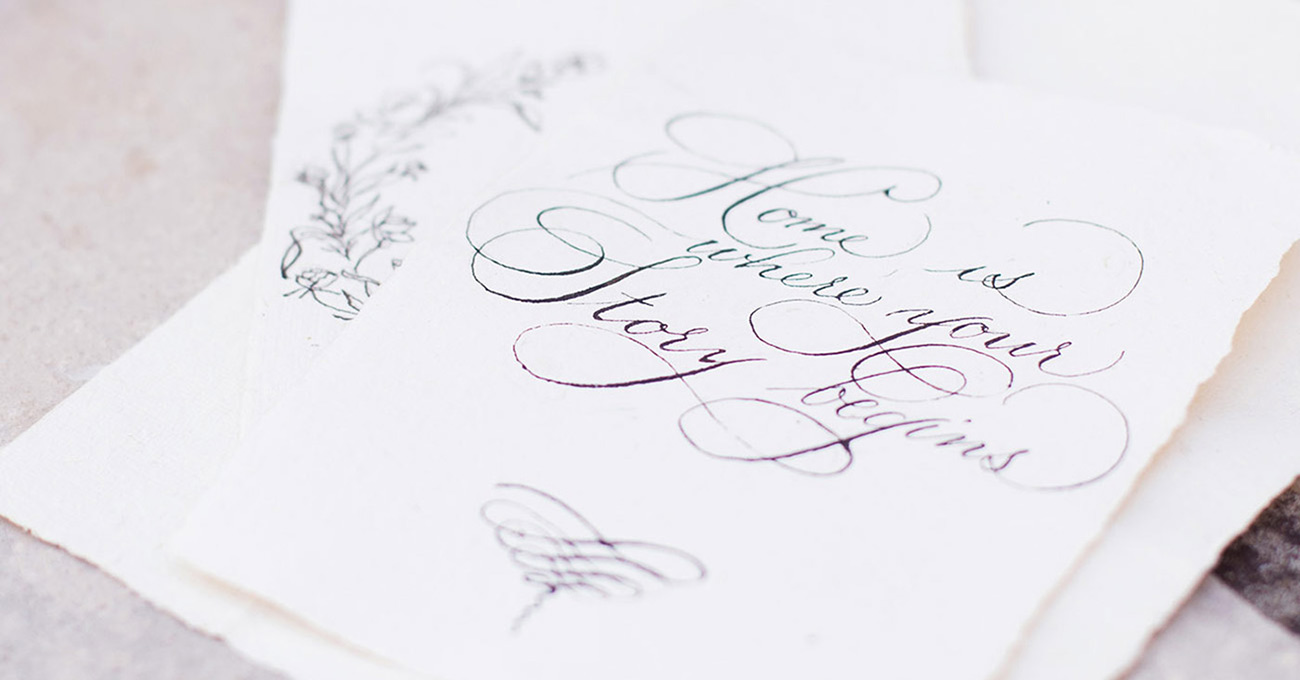 Home is
where your
Story
begins